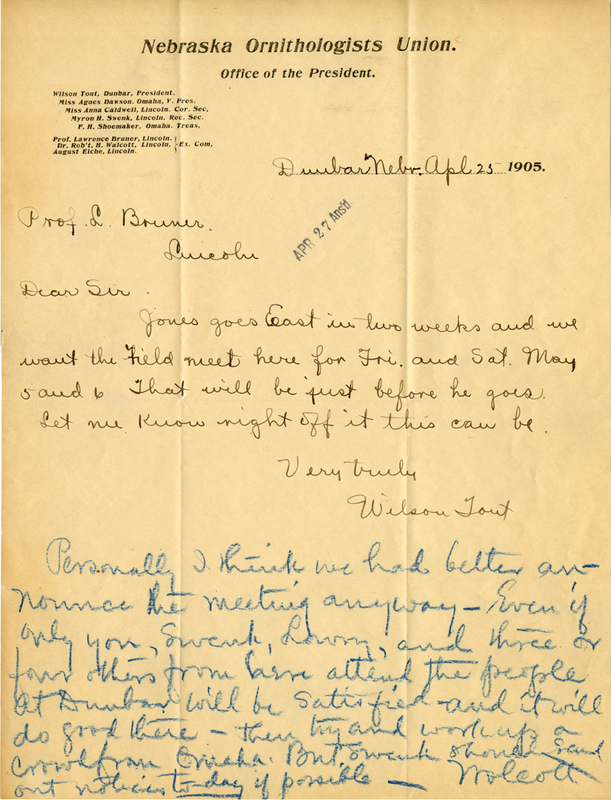 Nebraska Ornithologists Union.
Office of the President.
Wilson Tout, Dunbar, President.
Miss Agnes Dawson. Omaha, V. Pres.
Miss Anna Caldwell, Lincoln. Cor. Sec.
Myron H. Swenk, Lincoln. Rec. Sec.
F. H. Shoemaker, Omaha. Treas.
Prof. Lawrence Bruner, Lincoln.
Dr. Rob't. H. Walcott, Lincoln. } Ex. Com.
August Eiche, Lincoln.
Dunbar Nebr. Apl 25 1905.
APR 27 Ansd
Prof. L. Bruner.
Lincoln
Dear Sir.
Jones goes East in two weeks and we
want the Field meet here for Fri. and Sat. May
5 and 6 That will be just before he goes.
Let me know right off if this can be.
Very truly
Wilson Tout
Personally I think we had better an-
nounce the meeting anyway - Even if
only you, Swenk, Lowry, and three or
four others from here attend the people
at Dunbar will be satisfied - and it will
do good there - then try and work up a
crowd from Omaha. But Swenk should send
out notices to-day if possible — Wolcott